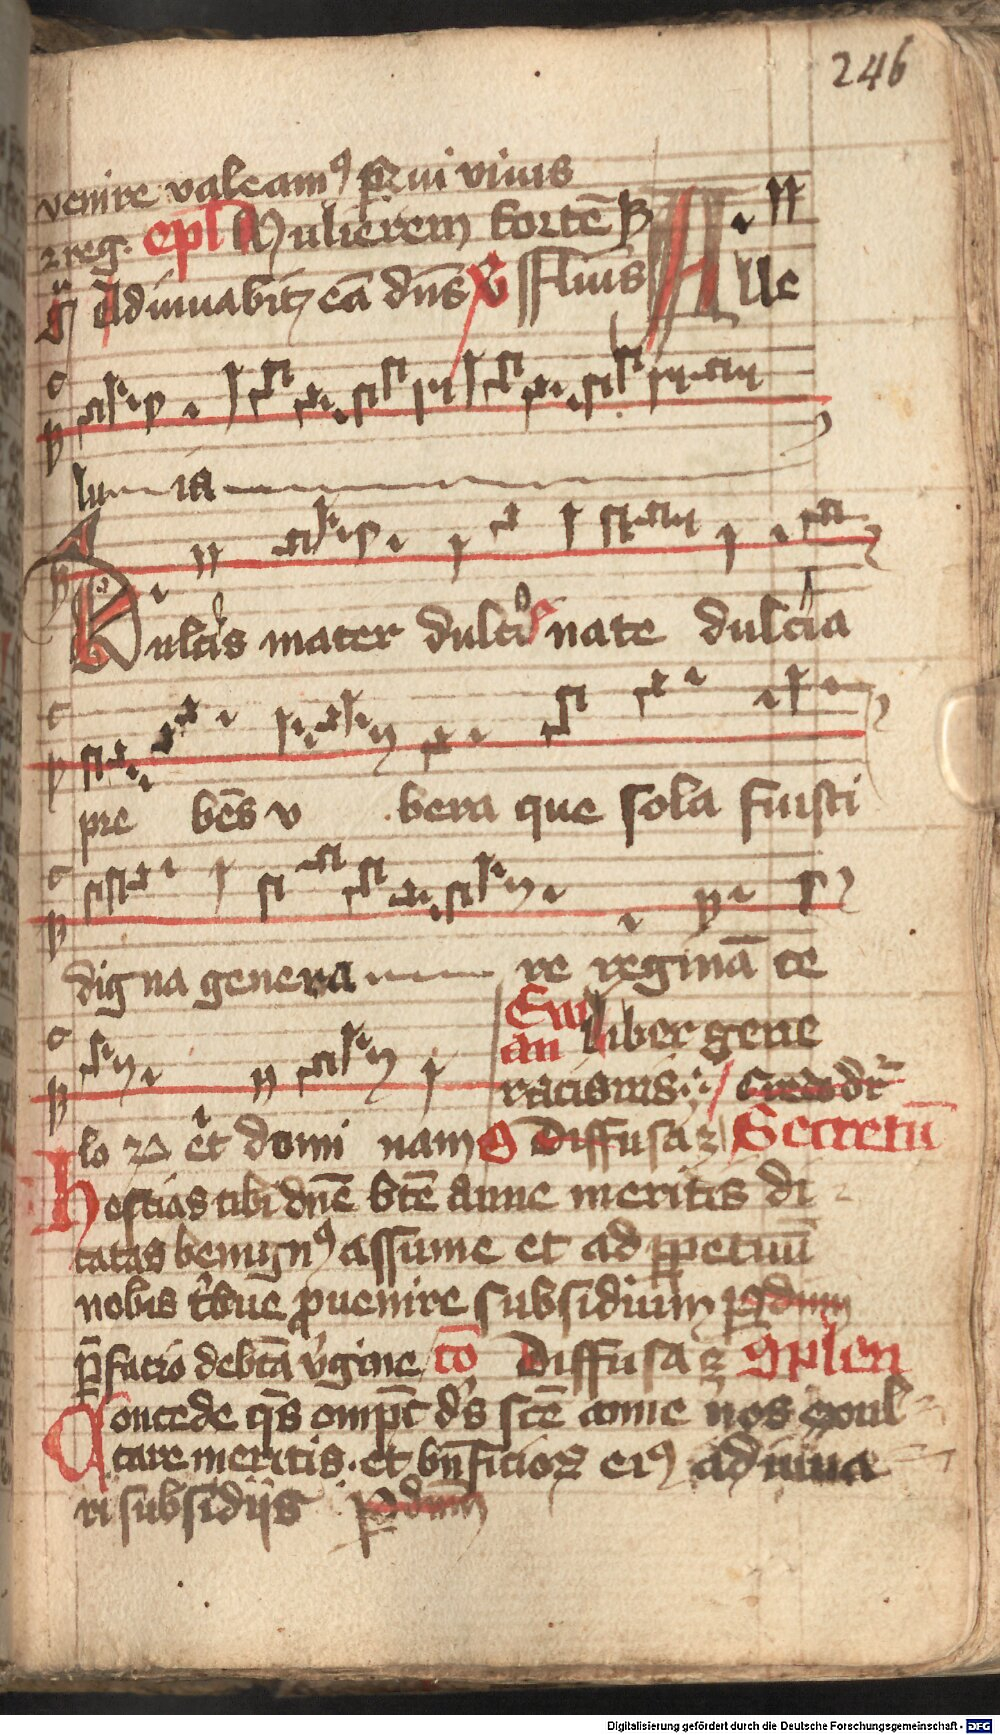 246
venire valeamꝰ ꝑ qui vivis
⁊ reg. epl̄a Mulierem fortē
Adiuuabit eā dn̄s Fluuis Alle
lu ia
Dulcis mater dulci nate dulcia
pre bēs v bera que sola fuisti
digna genera re reginā ce
Ewan liber gene
racionis: Credo dr̄
lo ⁊ et domi nam Diffusa Secretū
Hostias tibi dn̄e bt̄e anne meritis di
catas benignꝰ assume et ad ꝑpetuū
nobis t'bue ꝓuenire subsidium P dnm̄
p̄facio de bt̄a v'gine cō Diffusa ꝯplen
Concede qs̄ omp̄t d's sct̄e anne nos exul
tare meritis. et bn̄ficioꝝ eiꝰ adiuua
ri subsidijs P dnm̄
Digitalisierung gefördert durch die Deutsche Forschungsgemeinschaft - DFG